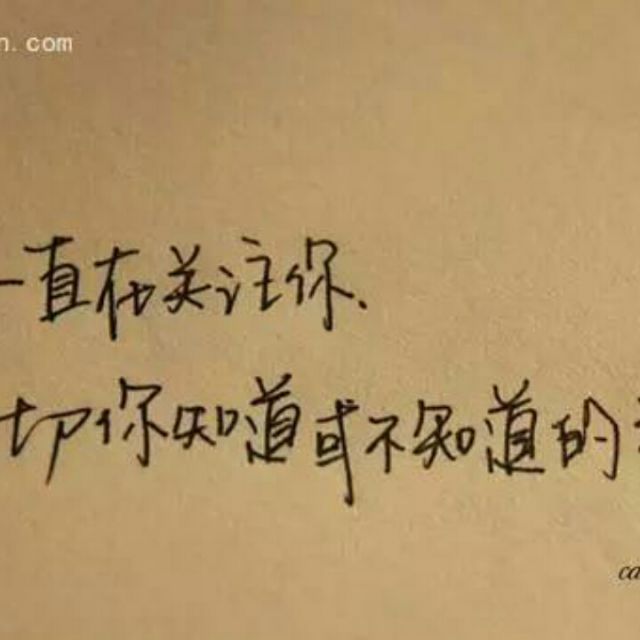 n.com
一直在关注你.
切你知道或不知道的
ca